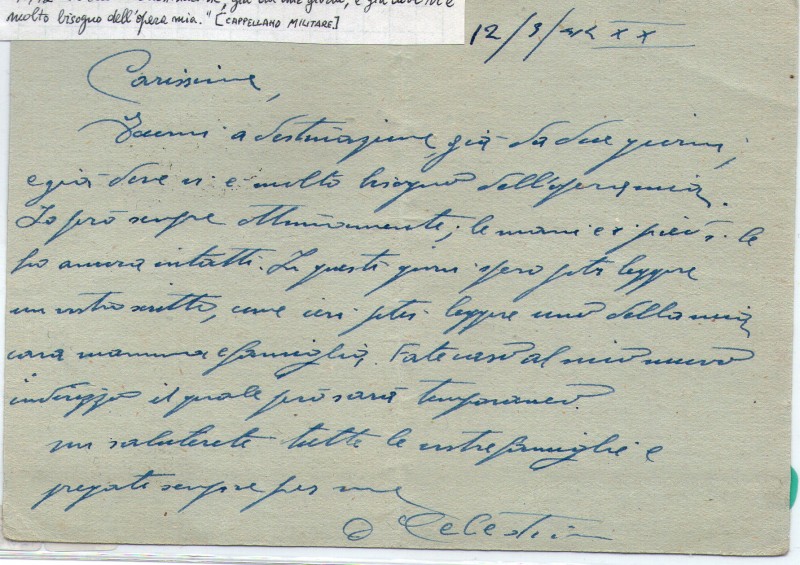 molto bisogno dell'opera mia." [CAPPELLANO MILITARE.]
12/3/42 XX
Carissime,
Giunsi a destinazione, già da due giorni,
e già dove vi è molto bisogno dell'opera mia.
Io però sempre ottimamente; le mani e i piedi le
ho ancora intatti. In questi giorni spero poter leggere
un vostro scritto, come ieri potei leggere uno della mia
cara mamma e famiglia. Fate caso al mio nuovo
indirizzo il quale però sarà temporaneo.
mi saluterete tutte le vostre famiglie e
pregate sempre per me
Celestin